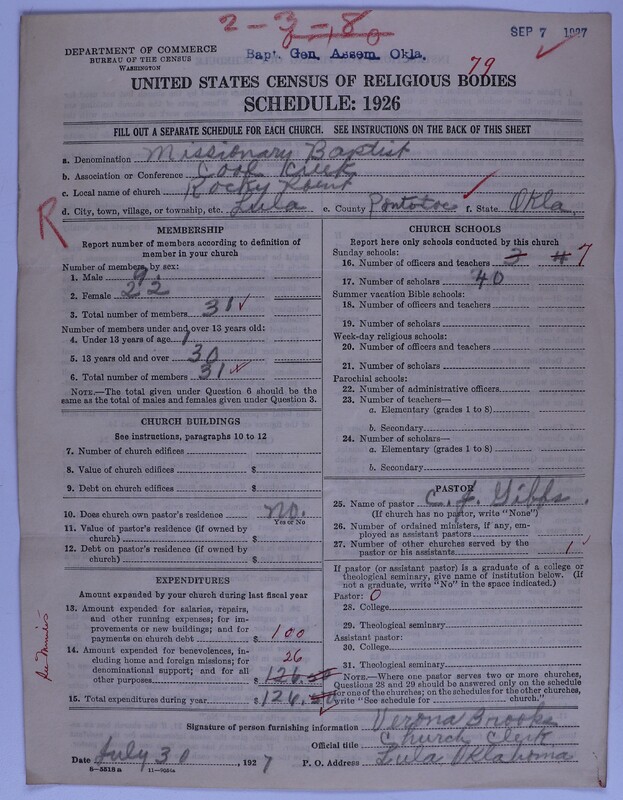 2-3-18 0
SEP 7 1927
DEPARTMENT OF COMMERCE
BUREAU OF THE CENSUS
WASHINGTON
Bapt. Gen. Assem. Okla.
79
UNITED STATES CENSUS OF RELIGIOUS BODIES
SCHEDULE: 1926
FILL OUT A SEPARATE SCHEDULE FOR EACH CHURCH. SEE INSTRUCTIONS ON THE BACK OF THIS SHEET
a. Denomination Missionary Baptist
b. Association or Conference
c. Local name of church Rocky Point
d. City, town, village, or township, etc. Lula e. County Pontotoc f. State Okla
R
MEMBERSHIP
Report number of members according to definition of member in your church
Number of members, by sex:
1. Male 9
2. Female 22
3. Total number of members 31
Number of members under and over 13 years old:
4. Under 13 years of age 1
5. 13 years old and over 30
6. Total number of members 31
NOTE.—The total given under Question 6 should be the same as the total of males and females given under Question 3.
CHURCH BUILDINGS
See instructions, paragraphs 10 to 12
7. Number of church edifices
8. Value of church edifices $
9. Debt on church edifices $
10. Does church own pastor's residence? No.
Yes or No
11. Value of pastor's residence (if owned by church) $
12. Debt on pastor's residence (if owned by church) $
EXPENDITURES
Amount expended by your church during last fiscal year
13. Amount expended for salaries, repairs, and other running expenses; for improvements or new buildings; and for payments on church debt $ 100
14. Amount expended for benevolences, including home and foreign missions; for denominational support; and for all other purposes 26
$ 126.50
15. Total expenditures during year $ 126.50
CHURCH SCHOOLS
Report here only schools conducted by this church
Sunday schools:
16. Number of officers and teachers 7
17. Number of scholars 40
Summer vacation Bible schools:
18. Number of officers and teachers
19. Number of scholars
Week-day religious schools:
20. Number of officers and teachers
21. Number of scholars
Parochial schools:
22. Number of administrative officers
23. Number of teachers—
a. Elementary (grades 1 to 8)
b. Secondary
24. Number of scholars—
a. Elementary (grades 1 to 8)
b. Secondary
PASTOR
25. Name of pastor C. J. Gibbs.
(If church has no pastor, write "None")
26. Number of ordained ministers, if any, employed as assistant pastors
27. Number of other churches served by the pastor or his assistants 1
If pastor (or assistant pastor) is a graduate of a college or theological seminary, give name of institution below. (If not a graduate, write "No" in the space indicated.)
Pastor: 0
28. College
29. Theological seminary
Assistant pastor:
30. College
31. Theological seminary
NOTE.—Where one pastor serves two or more churches, Questions 28 and 29 should be answered only on the schedule for one of the churches; on the schedules for the other churches, write "See schedule for church."
Signature of person furnishing information Verona Brooks
Official title Church Clerk
Date July 30, 1927 P. O. Address Lula Oklahoma
8-5518a 11-9054a